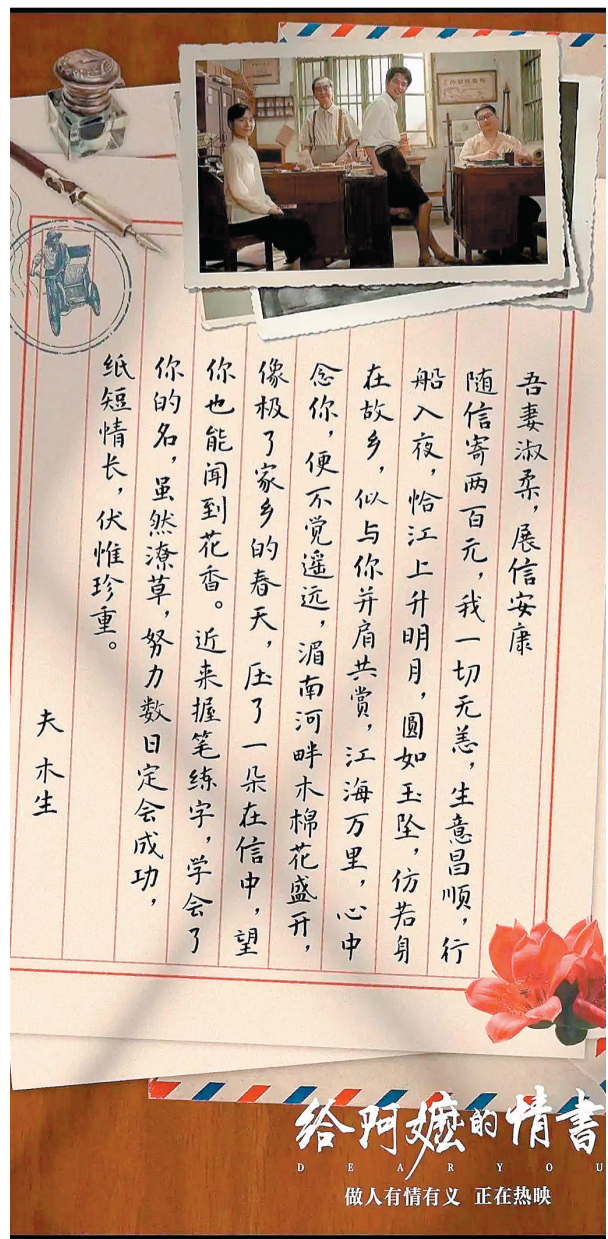 吾妻淑柔，展信安康
随信寄两百元，我一切无恙，生意昌顺，行
船入夜，恰江上升明月，圆如玉坠，仿若身
在故乡，似与你并肩共赏，江海万里，心中
念你，便不觉遥远，湄南河畔木棉花盛开，
像极了家乡的春天，压了一朵在信中，望
你也能闻到花香。近来握笔练字，学会了
你的名，虽然潦草，努力数日定会成功，
纸短情长，伏惟珍重。
夫木生
给阿嬷的情書
DEAR YOU
做人有情有义 正在热映